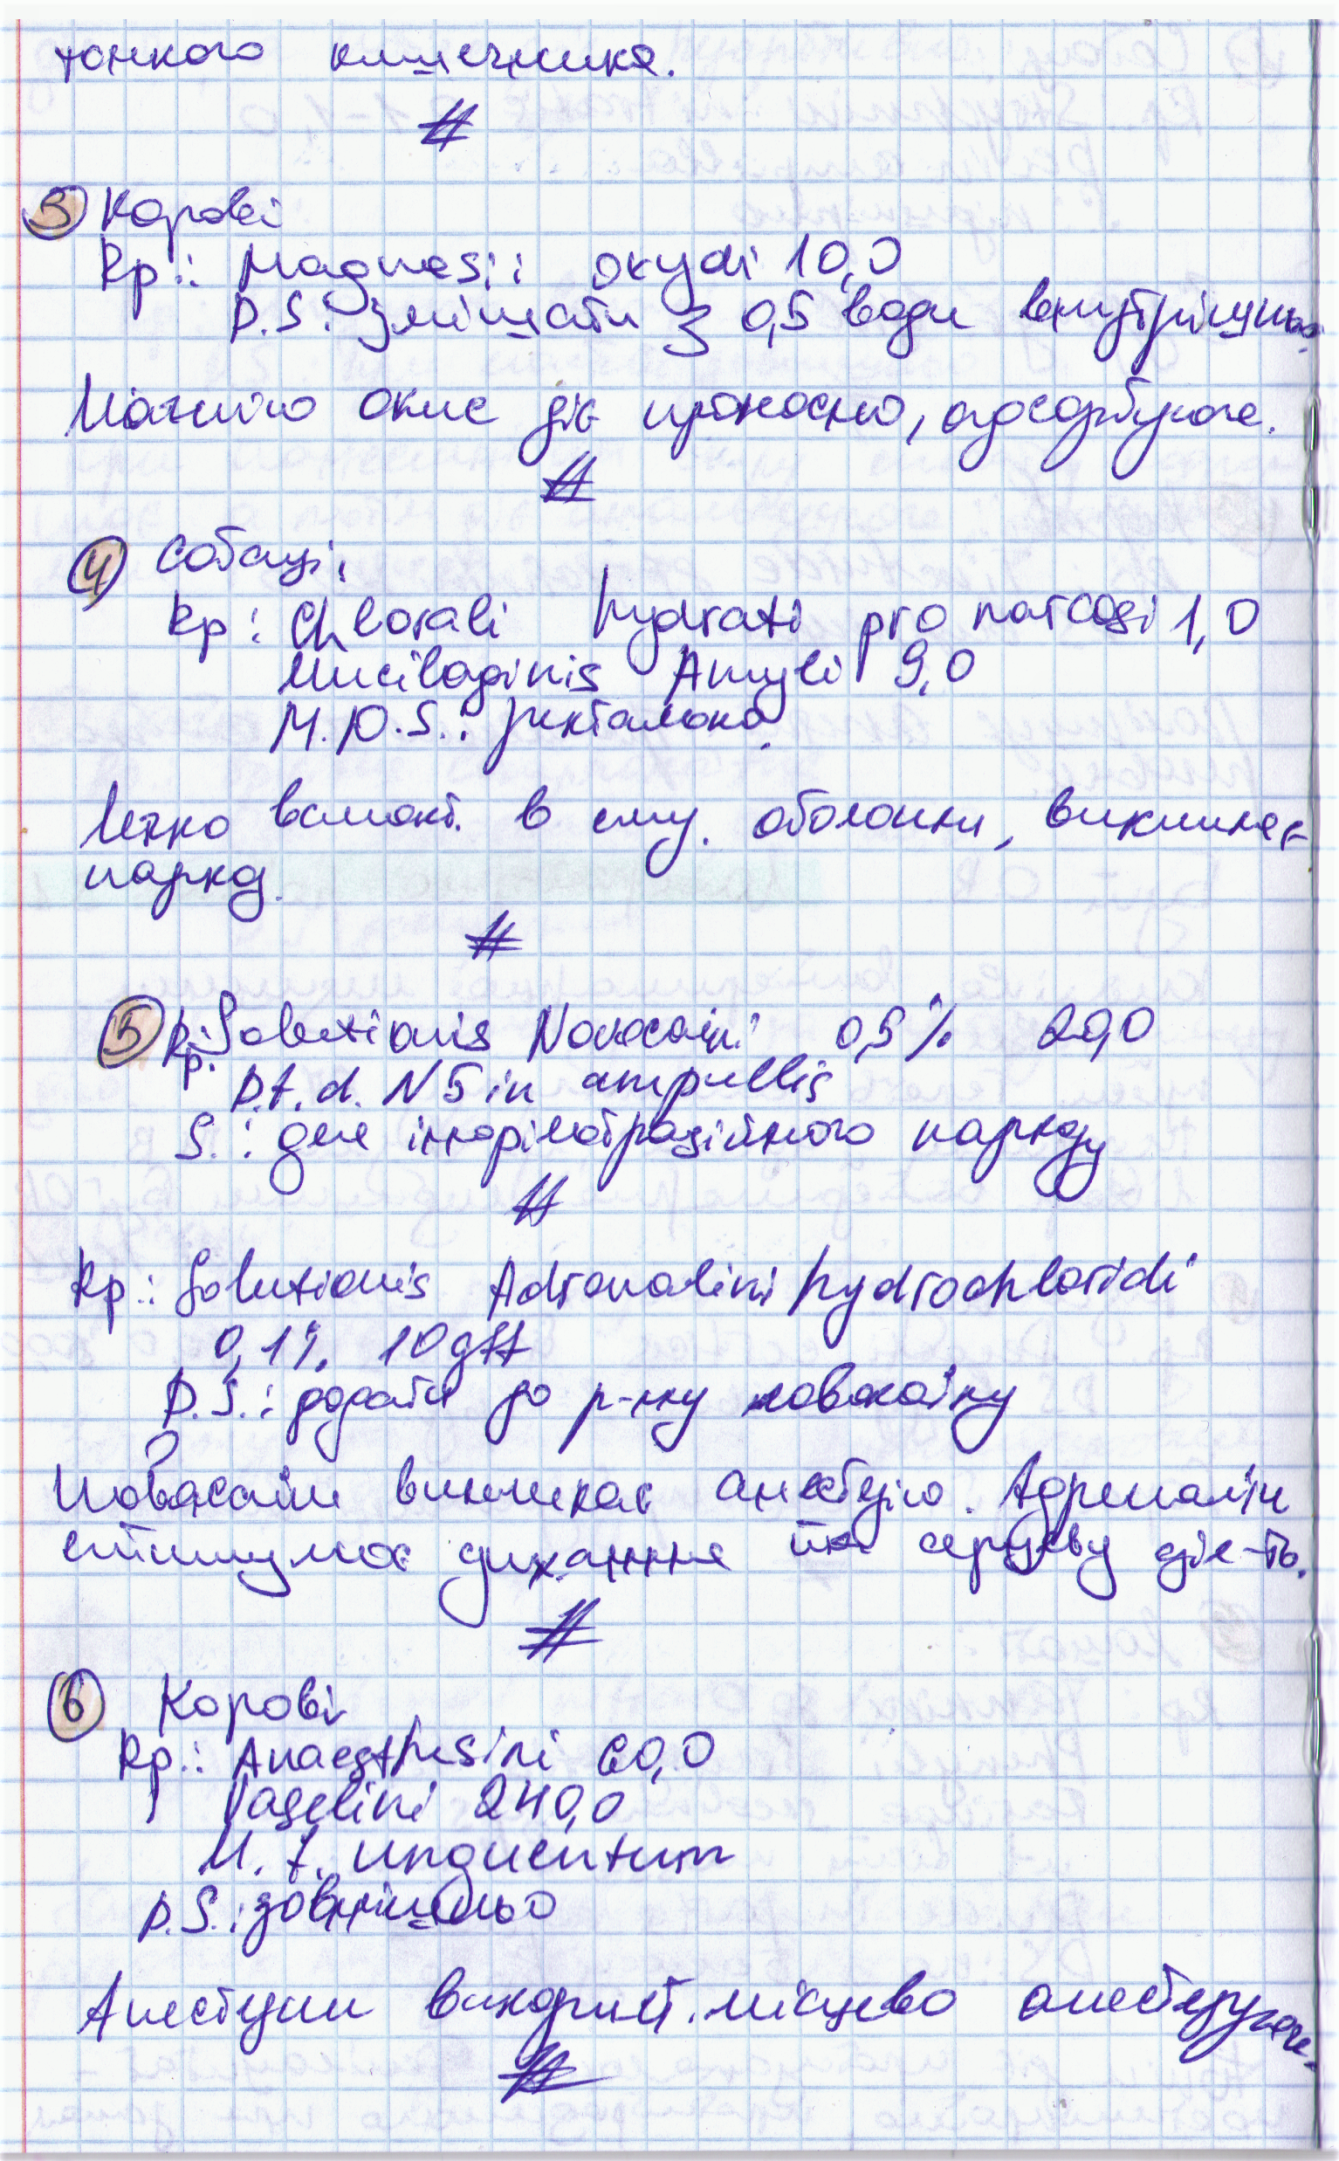 тонкого кишечника.
#
3 Корові
Rp.: Magnesii oxydi 10,0
D.S. Змішати з 0,5 води внутрішньо.
Магнію окис діє проносно, адсорбуюче.
#
4 Собаці
Rp.: Chlorali hydrati pro narcosi 1,0
Mucilaginis Amyli 9,0
M.D.S.: ректально.
Легко всмокт. в слиз. оболонки, викликає
наркоз.
#
5 Rp.: Solutionis Novocaini 0,5% 20,0
D.t.d. N 5 in ampullis
S.: для інфільтраційного наркозу
#
Rp.: Solutionis Adrenalini hydrochloridi
0,1% 10 gtt
D.S.: додати до р-ну новокаїну
Новокаїн викликає анестезію. Адреналін
стимулює дихання та серцеву дія-ть.
#
6 Корові
Rp.: Anaesthesini 60,0
Vaselini 240,0
M.f. unguentum
D.S.: зовнішньо
Анестезин використ. місцево анестезуюче.
#